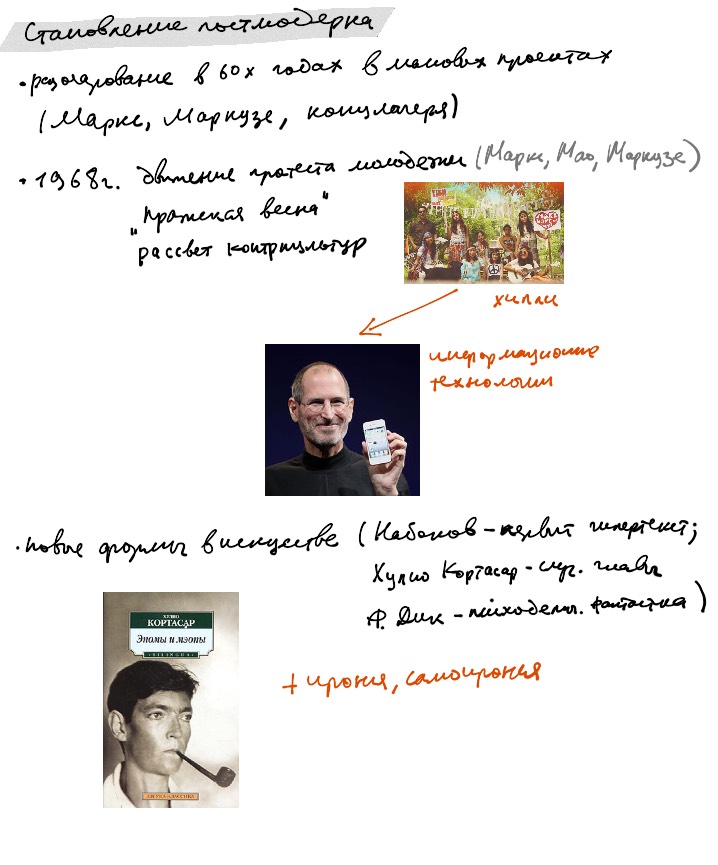 Становление постмодерна
• разочарование в 60х годах в левых проектах
(Маркс, Маркузе, концлагеря)
• 1968г. движение протеста молодежи (Маркс, Мао, Маркузе)
"Пражская весна"
рассвет контркультур
хиппи
информационные
технологии
• новые формы в искусстве (Набоков - первый гипертекст;
Хулио Кортасар - случ. главы
Ф. Дик - психодел. фантастика)
ХУЛИО
КОРТАСАР
Эпомы и мэопы
BILINGUA
АЗБУКА-КЛАССИКА
+ ирония, самоирония